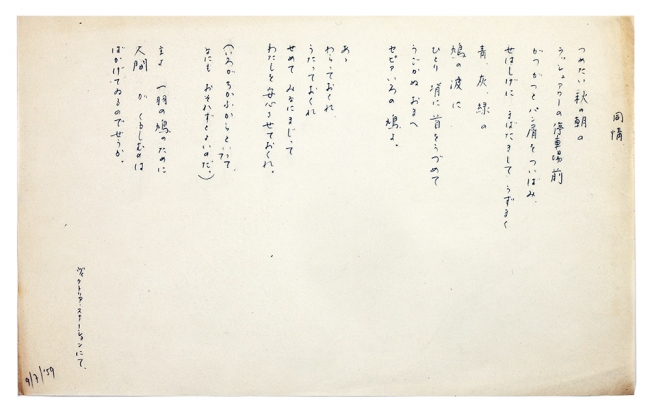 同情
つめたい秋の朝の
ラッシュアワーの停車場前
かつかつとパン屑をついばみ、
せはしげに まばたきして うずまく
青、灰、緑の
鳩の波に
ひとり 肩に首をうづめて
うごかぬ おまへ
セピアいろの鳩よ。
あゝ
わらっておくれ
うたっておくれ
せめて みなにまじって
わたしを安心させておくれ。
(いろがちがふからといって、
なにも おそれずとよいのだ。)
主よ 一羽の鳩のために
人間 が くるしむのは
ばかげてゐるのでせうか。
ヴィクトリア・ステーションにて、
9/7/'59